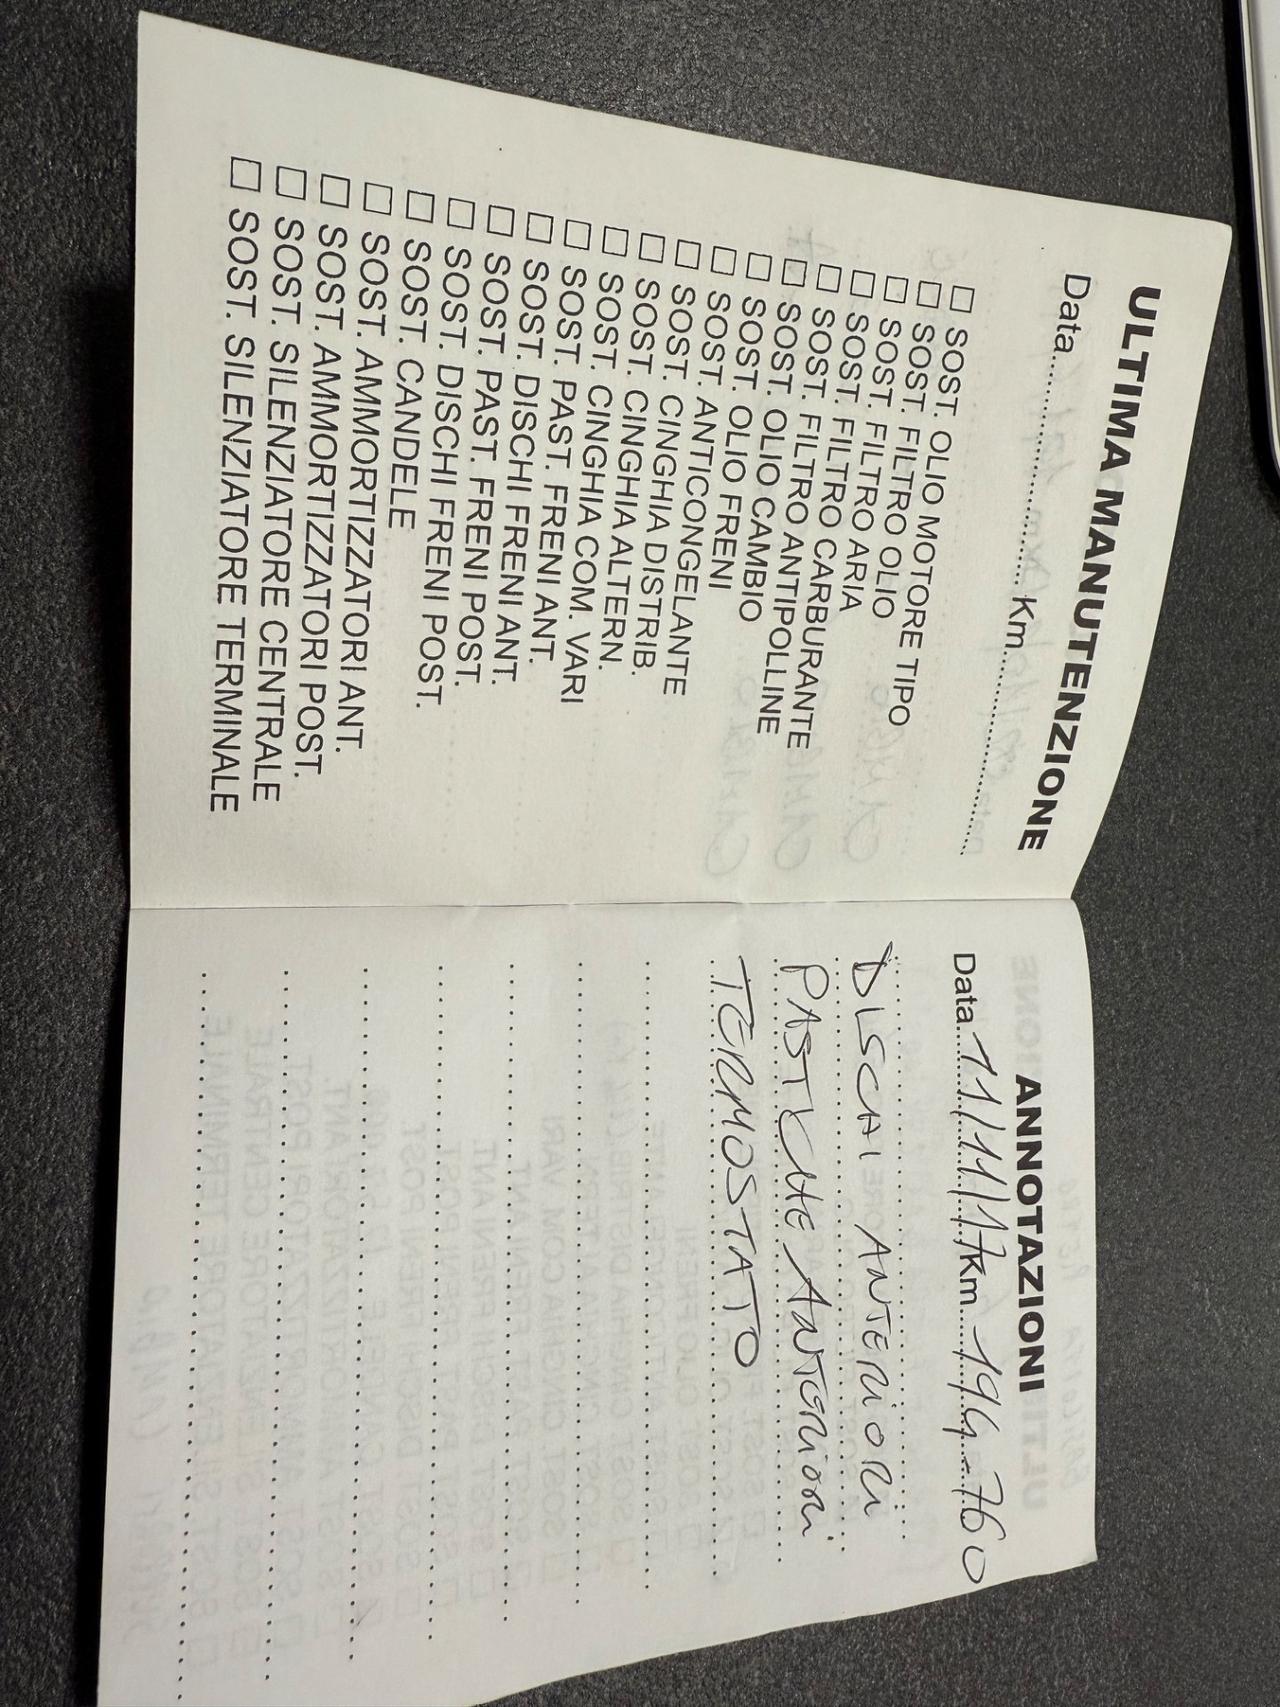 ULTIMA MANUTENZIONE
Data.................... Km....................
☐ SOST. OLIO MOTORE TIPO
☐ SOST. FILTRO OLIO
☐ SOST. FILTRO ARIA
☐ SOST. FILTRO CARBURANTE
☐ SOST. FILTRO ANTIPOLLINE
☐ SOST. OLIO CAMBIO
☐ SOST. OLIO FRENI
☐ SOST. ANTICONGELANTE
☐ SOST. CINGHIA DISTRIB.
☐ SOST. CINGHIA ALTERN.
☐ SOST. CINGHIA COM. VARI
☐ SOST. PAST. FRENI ANT.
☐ SOST. DISCHI FRENI ANT.
☐ SOST. PAST. FRENI POST.
☐ SOST. DISCHI FRENI POST.
☐ SOST. CANDELE
☐ SOST. AMMORTIZZATORI ANT.
☐ SOST. AMMORTIZZATORI POST.
☐ SOST. SILENZIATORE CENTRALE
☐ SOST. SILENZIATORE TERMINALE
ANNOTAZIONI
Data 11/11/17 Km 194.760
DISCHI ANTERIORI
PASTICHE ANTERIORI
TERMOSTATO